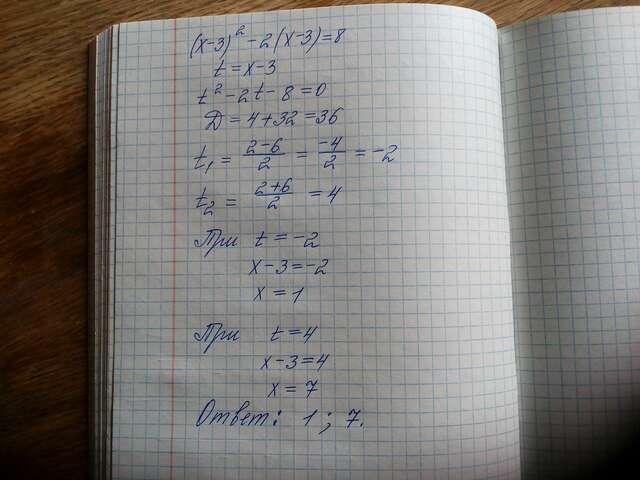 (x-3)² - 2(x-3) = 8
t = x-3
t² - 2t - 8 = 0
Д = 4 + 32 = 36
t₁ = (2-6)/2 = -4/2 = -2
t₂ = (2+6)/2 = 4
При t = -2
x - 3 = -2
x = 1
При t = 4
x - 3 = 4
x = 7
Ответ: 1; 7.